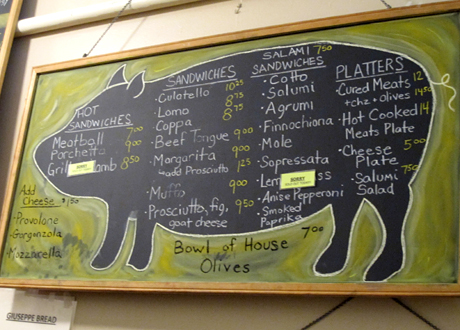 HOT
SANDWICHES
Meatball 7.00
Porchetta 9.00
Gril lamb 8.50
SORRY
Add
Cheese $1.50
·Provolone
·Gorgonzola
·Mozzarella
SANDWICHES
·Culatello 10.25
·Lomo 8.75
·Coppa 8.75
·Beef Tongue 9.00
·Margarita 9.00
w/add Prosciutto 1.25
·Muffo 9.00
·Prosciutto, fig, 9.50
goat cheese
SALAMI 7.50
SANDWICHES
·Cotto
·Salumi
·Agrumi
·Finnochiona
·Mole
·Sopressata
SORRY
·Anise Pepperoni
·Smoked
Paprika
PLATTERS
·Cured Meats 12
+chz + olives 14.50
·Hot Cooked 14
Meats Plate
·Cheese 5.00
Plate
·Salumi 7.50
Salad
Bowl of House 7.00
Olives
GIUSEPPE BREAD